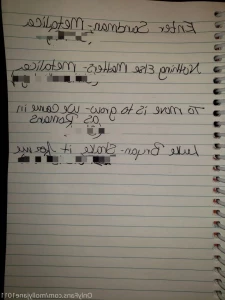 Enter Sandman - Metalica
Nothing Else Matters - Metalica
To move is to grow - We Came in
as Romans
Luke Bryan - Shake it for me
OnlyFans.com/mollyjane1011